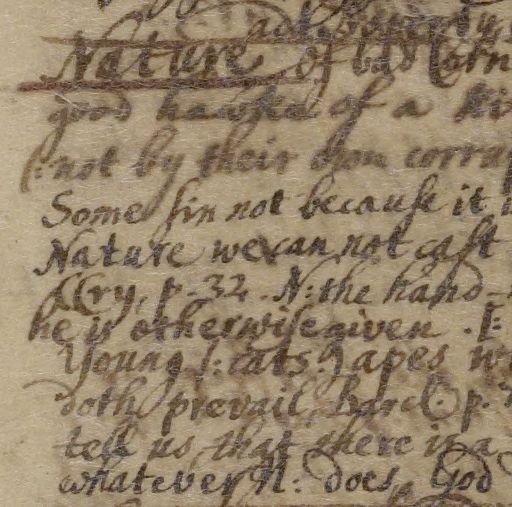 Nature of bad Corn
good hawke of a ki
|: not by their own corrup
Some sin not because it i
Nature we can not cast
Cry, p. 32. N: the hand
he is otherwise given. |:
Young |: cats :| apes w
doth prevail, Barcl. p.
tell us that there is a
whatever N: does, God